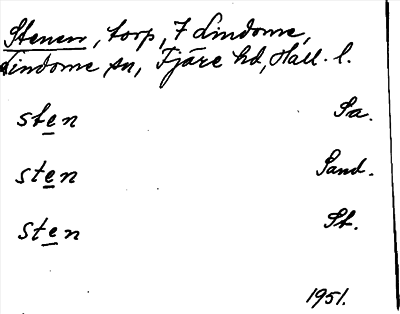 Stenen, torp, 7 Lindome,
Lindome sn, Fjäre hd, Hall. l.
sten Sa.
sten Sand.
sten St.
1951.